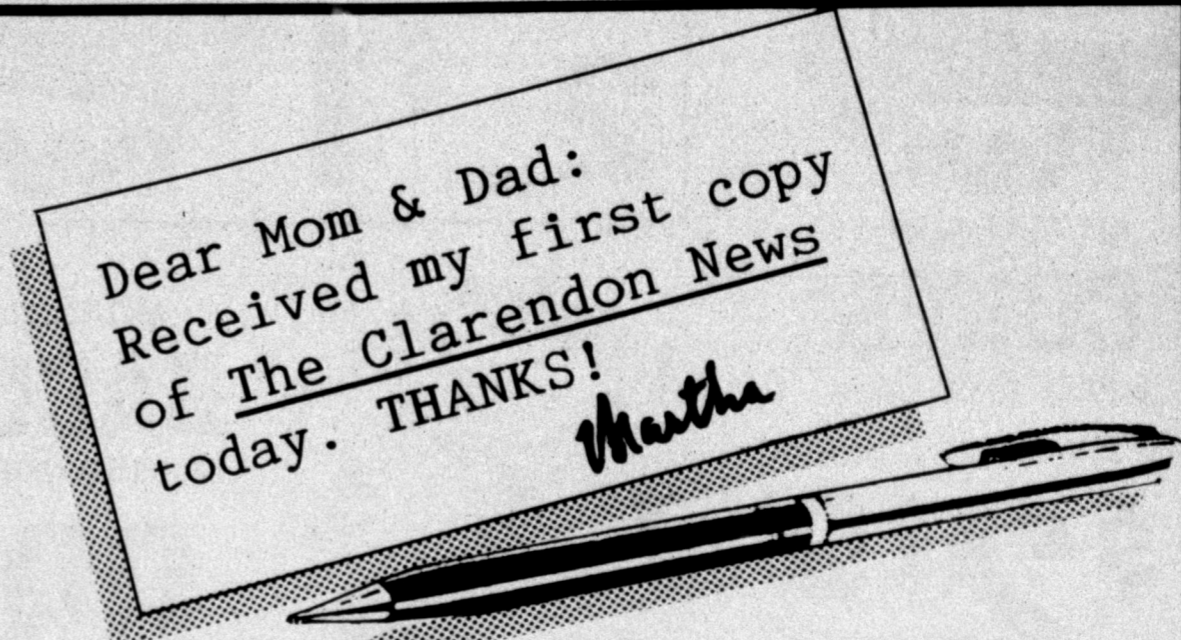 Dear Mom & Dad:
Received my first copy
of The Clarendon News
today. THANKS!
Martha